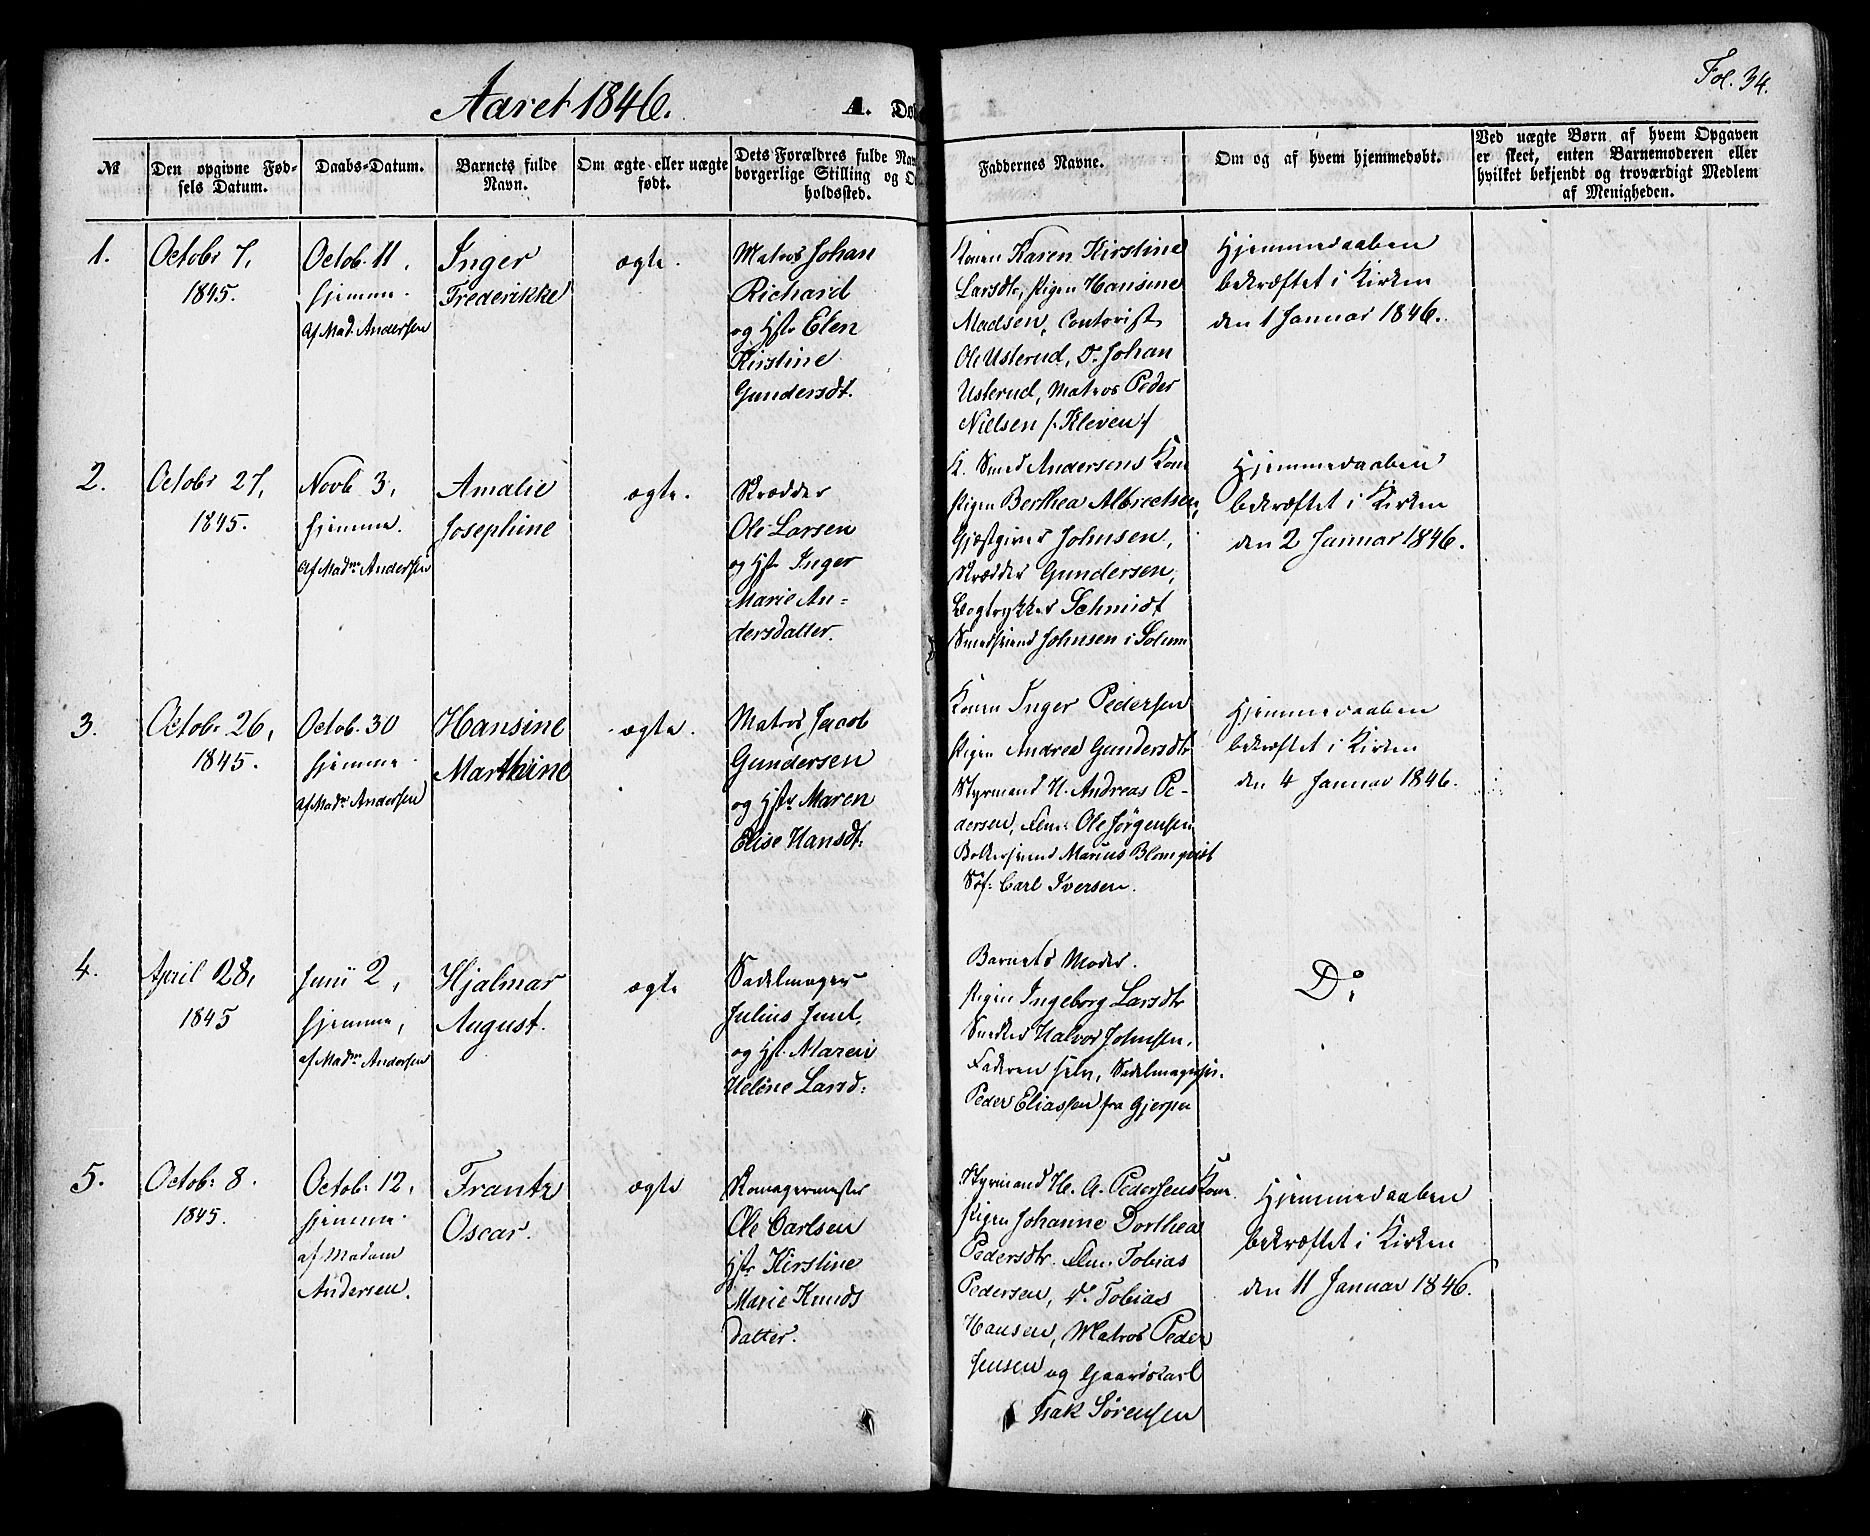 Fol. 34.
Aaret 1846.
A. Dø
№
Den opgivne Fød-
sels Datum.
Daabs-Datum.
Barnets fulde
Navn.
Om ægte eller uægte
født.
Dets Forældres fulde Nav
borgerlige Stilling og O
holdssted.
Faddernes Navne.
Om og af hvem hjemmedøbt.
Ved uægte Børn af hvem Opgaven
er skeet, enten Barnemoderen eller
hvilket bekjendt og troværdigt Medlem
af Menigheden.
1.
Octobr 7,
1845.
Octob. 11,
hjemme.
af Mad. Andersen
Inger
Frederikke
ægte.
Matros Johan
Richard
og Hstr Elen
Kirstine
Gundersdt.
Konen Karen Kirstine
Larsdtr, Pigen Hansine
Madsen, Contorist
Ole Usterud, Do Johan
Usterud, Matros Peder
Nielsen /: Kleven :/
Hjemmedaaben
bekræftet i Kirken
den 1 Januar 1846.
2.
Octobr 27,
1845.
Novb. 3,
hjemme.
af Madm Andersen
Amalie
Josephine
ægte.
Skrædder
Ole Larsen
og Hstr Inger
Marie An=
dersdatter.
K. Smed Andersens Kone
Pigen Berthea Albretsen,
Gjæstgiver Johnsen,
Skrædder Gundersen,
Bogtrykker Schmidt
Smedsvend Johnsen i Solum
Hjemmedaaben
bekræftet i Kirken
den 2 Januar 1846.
3.
Octobr 26,
1845.
Octob. 30
hjemme.
af Madm Andersen
Hansine
Marthine
ægte.
Matros Jacob
Gundersen
og Hstr Maren
Elise Hansdt:
Konen Inger Pedersen
Pigen Andrea Gundersdtr
Styrmand H. Andreas Pe-
dersen, Tlm: Ole Jørgensen
Bødkersvend Marius Blomqvist
Søf: Carl Iversen.
Hjemmedaaben
bekræftet i Kirken
den 4 Januar 1846.
4.
April 28,
1845
Junii 2,
hjemme,
af Madm Andersen
Hjalmar
August.
ægte
Sadelmager
Julius Juul,
og Hst. Maren
Heléne Larsd:
Barnets Moder.
Pigen Ingeborg Larsdtr
Snedker Halvor Johnsen,
Faderen selv, Sadelmagersv.
Peder Eliassen fra Gjerpen
Do
5.
Octob: 8.
1845.
Octob: 12,
hjemme.
af Madam
Andersen.
Frantz
Oscar.
ægte
Skomagermester
Ole Carlsen
Hstr Kirstine
Marie Knuds
datter.
Styrmand H. A. Pedersens Kone.
Pigen Johanne Dorthea
Pedersdtr. Tlm. Tobias
Pedersen, Do Tobias
Hansen, Matros Peder
Jensen og Gaardskarl
Isak Sørensen
Hjemmedaaben
bekræftet i Kirken
den 11 Januar 1846.